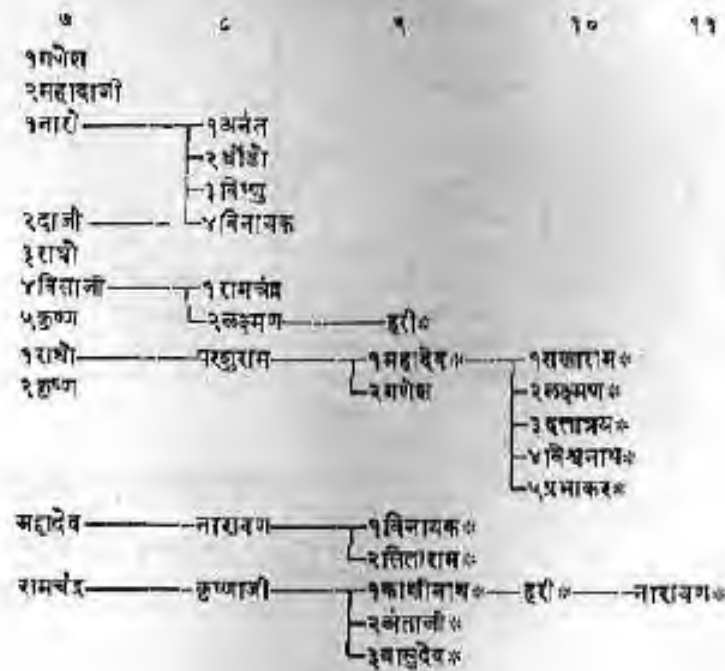 ७ ८ ९ १० ११
१गणेश
२महादाजी
३नारो १अनंत
२धोंडो
३विष्णु
२दाजी ४विनायक
३राघो
४विसाजी १रामचंद्र
५कृष्ण २लक्ष्मण हरी*
१राघो परशुराम १महादेव* १सखाराम*
२कृष्ण २गणेश २लक्ष्मण*
३दत्तात्रय*
४विश्वनाथ*
५प्रभाकर*
महादेव नारायण १विनायक*
२सिताराम*
रामचंद्र कृष्णाजी १काशीनाथ* हरी* नारायण*
२अंताजी*
३वासुदेव*